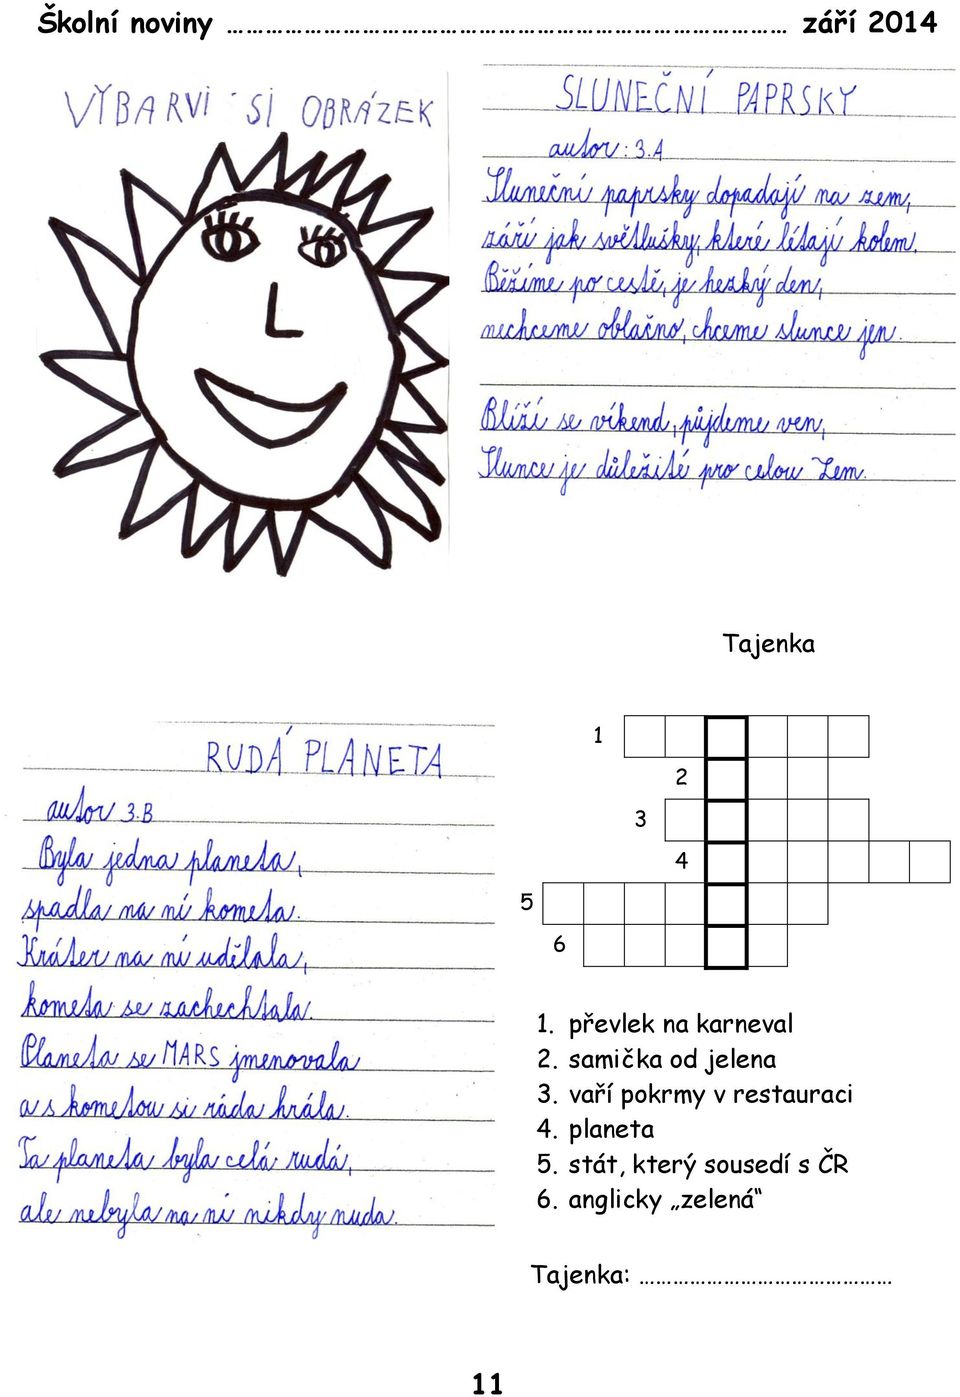 Školní noviny ……………………………………………………………………………… září 2014
VYBARVI SI OBRÁZEK
SLUNEČNÍ PAPRSKY
autor: 3.A
Sluneční paprsky dopadají na zem,
září jak světlušky, které létají kolem.
Běžíme po cestě, je hezký den,
nechceme oblačno, chceme slunce jen.
Blíží se víkend, půjdeme ven,
Slunce je důležité pro celou Zem.
RUDÁ PLANETA
autor 3.B
Byla jedna planeta,
spadla na ní kometa.
Kráter na ní udělala,
kometa se zachechtala.
Planeta se MARS jmenovala
a s kometou si ráda hrála.
Ta planeta byla celá rudá,
ale nebyla na ní nikdy nuda.
Tajenka
1
2
3
4
5
6
1. převlek na karneval
2. samička od jelena
3. vaří pokrmy v restauraci
4. planeta
5. stát, který sousedí s ČR
6. anglicky „zelená“
Tajenka: ………………………………………
11